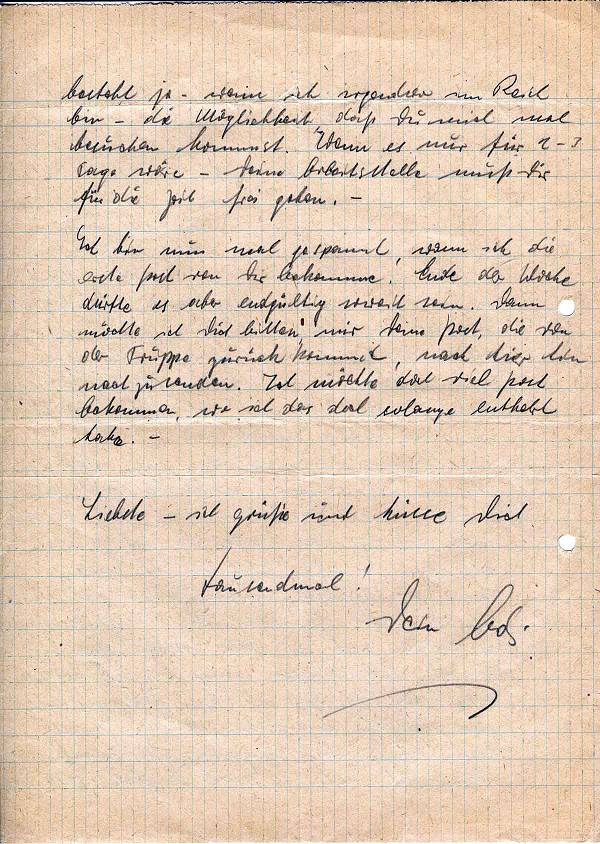 besteht ja – wenn ich irgendwo im Reich
bin – die Möglichkeit daß Du mich mal
besuchen kommst. Wenn es nur für 2–3
Tage wäre – Deine Arbeitsstelle muß Dir
für die Zeit frei geben. –
Ich bin nun mal gespannt, wann ich die
erste Post von Dir bekomme! Ende der Woche
dürfte es aber endgültig soweit sein. Dann
möchte ich Dich bitten, mir Deine Post, die von
der Truppe zurück kommt, nach hier hin
nachzusenden. Ich möchte doch viel Post
bekommen, wo ich das doch solange entbehrt
habe. –
Liebste – ich grüße und küsse Dich
tausendmal!
Dein